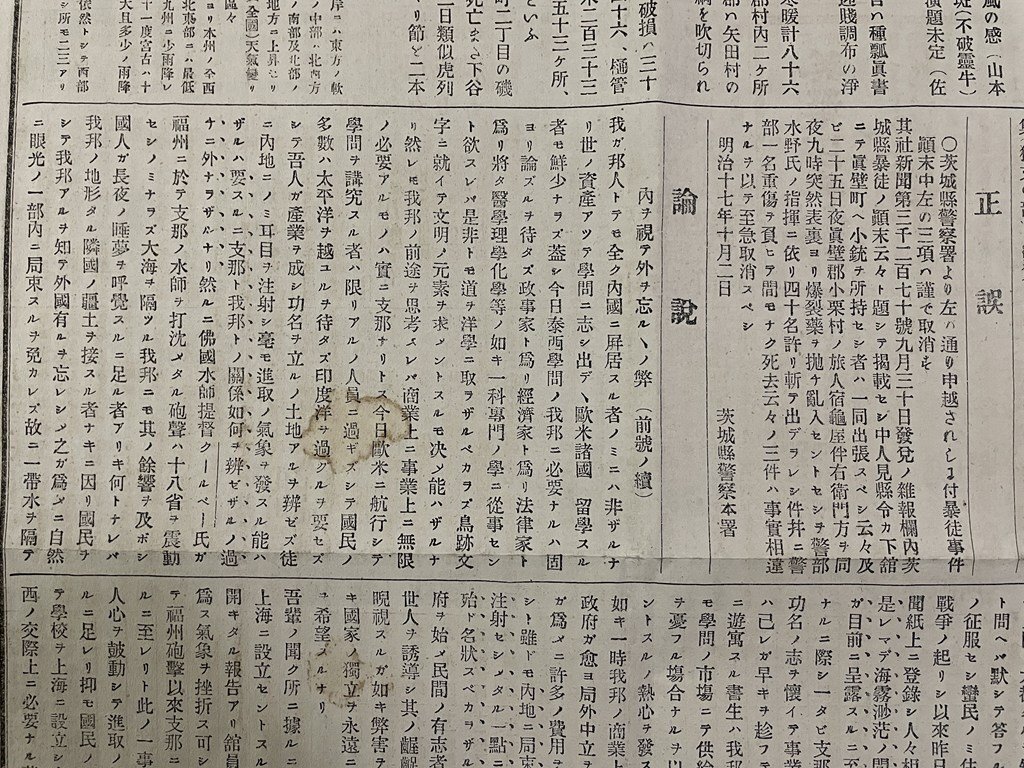 風の感(山本
斑(不破靈牛)
演題未定(佐
寒暖計八十六
郡村内二ヶ所
郡ハ矢田村の
綱を吹切られ
破損ハ三十
二十六、樋管
木二百三十三
五十三ヶ所、
といふ
町二丁目の磯
死亡まさ下谷
二日類似虎列
岸ハ東方ノ軟
ノ中部ハ北西方
ノ南部及北部ノ
地方ニ上昇セリ
全國)天氣變り
區々
北東部ニハ最低
九州ニ少雨降レ
十一度宮古ハ十
大且多少ノ雨降
依然トシテ西部
シモ二三アリ
正誤
〇茨城縣警察署より左ハ通り申越されしよ付暴徒事件
顚末中左の三項ハ謹で取消を
其社新聞第三千二百七十號九月三十日發兌ノ雜報欄內茨
城縣暴徒ノ顚末云々ト題シテ揭載セシ中人見縣令カ下舘
ニテ眞壁町ヘ小銃ヲ所持セシ者ハ一同出張スベシ云々及
ビ二十五日夜眞壁郡小栗村ノ旅人宿龜屋件右衛門方ヲ同
夜九時突然表裏ヨリ爆裂藥ヲ抛チ亂入セントセシヲ警部
水野氏ノ指揮ニ依リ四十名許リ斬テ出デラレシ件幷ニ警
部一名重傷ヲ負ヒテ間モナク死去云々ノ三件ハ事實相違
ナルヲ以テ至急取消スベシ
明治十七年十月二日
茨城縣警察本署
論說
內ヲ視テ外ヲ忘ルヽノ弊 (前號ノ續)
我ガ邦人トテモ全ク內國ニ屛居スル者ノミニハ非ザルナ
リ世ノ資產アツテ學問ニ志シ出デヽ歐米諸國 留學スル
者モ鮮少ナラズ蓋シ今日泰西學問ノ我邦ニ必要ナルハ固
ヨリ論ズルヲ待タズ政事家ト爲リ經濟家ト爲リ法律家ト
爲リ將タ醫學理學化學等ノ如キ一科專門ノ學ニ從事セン
ト欲スレバ是非トモ道ヲ洋學ニ取ラザルベカラズ鳥跡文
字ニ就イテ文明ノ元素ヲ求メントスルモ决ノ能ハザルナ
リ然レモ我邦ノ前途ヲ思考スレバ商業上ニ事業上ニ無限
ノ必要アルモノハ實ニ支那ナリトス今日歐米ニ航行シテ
學問ヲ講究スル者ハ限リアルノ人員ニ過ギズシテ國民ノ
多數ハ太平洋ヲ越ユルヲ待タズ印度洋ヲ過グルヲ要セズ
シテ吾人ガ產業ヲ成シ功名ヲ立ルノ土地アルヲ辨ゼズ徒
ニ內地ニノミ耳目ヲ注射シ毫モ進取ノ氣象ヲ發スル能ハ
ザルハ要スルニ支那ト我邦トノ關係如何ヲ辨ゼザルノ過
チニ外ナラザルナリ然ルニ佛國水師提督クールベー氏ガ
福州ニ於テ支那ノ水師ヲ打沈メタル砲聲ハ十八省ヲ震動
セシノミナラズ大海ヲ隔ツル我邦ニモ其ノ餘響ヲ及ボシ
國人ガ長夜ノ睡夢ヲ呼覺スルニ足ル者アリキ何トナレバ
我邦ノ地形タル隣國ノ疆土ヲ接スル者ナキニ因リ國民ヲ
シテ我邦アルヲ知テ外國有ルヲ忘レシメ之ガ爲メニ自然
ニ眼光ノ一部內ニ局束スルヲ免カレズ故ニ一帶水ヲ隔テ
ト問ヘバ默シテ答フル
ノ征服セシ蠻民ノミ住
戰爭ノ起リシ以來昨日
聞紙上ニ登錄シ人々相
是レマデ海霧渺茫ノ間
ガ目前ニ呈露スルニ至
ナルニ際シ一タビ支那
功名ノ志ヲ懷イテ事業
ハ己レガ早キヲ趁フテ
ニ遊寓スル書生ハ我邦
モ學問ノ市場ニテ供給
ヲ憂フル塲合ナルヲ以
ントスルノ熱心ヲ發ス
如キ一時我邦ノ商業上
政府ガ愈ヨ局外中立ヲ
ガ爲メニ許多ノ費用ヲ
シト雖ドモ內地ニ局束
注射セシメタル一點ニ
殆ド名狀スベカラザル
府ヲ始メ民間ノ有志者
世人ヲ誘導シ其ノ齷齪
睨視スルガ如キ弊害ヲ
キ國家ノ獨立ヲ永遠ニ
ヲ希望スルナリ
吾輩ノ聞ク所ニ據ルニ
上海ニ設立セントスル
開キタル報告アリ館員
爲ス氣象ヲ挫折ス可シ
テ福州砲擊以來支那ニ
ルニ至レリト此ノ一事
人心ヲ鼓動シテ進取ノ
ルニ足レリ抑モ國民ノ
テ學校ヲ上海ニ設立シ
西ノ交際上ニ必要ナル